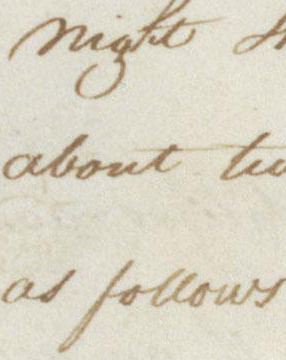 night
about
as follows